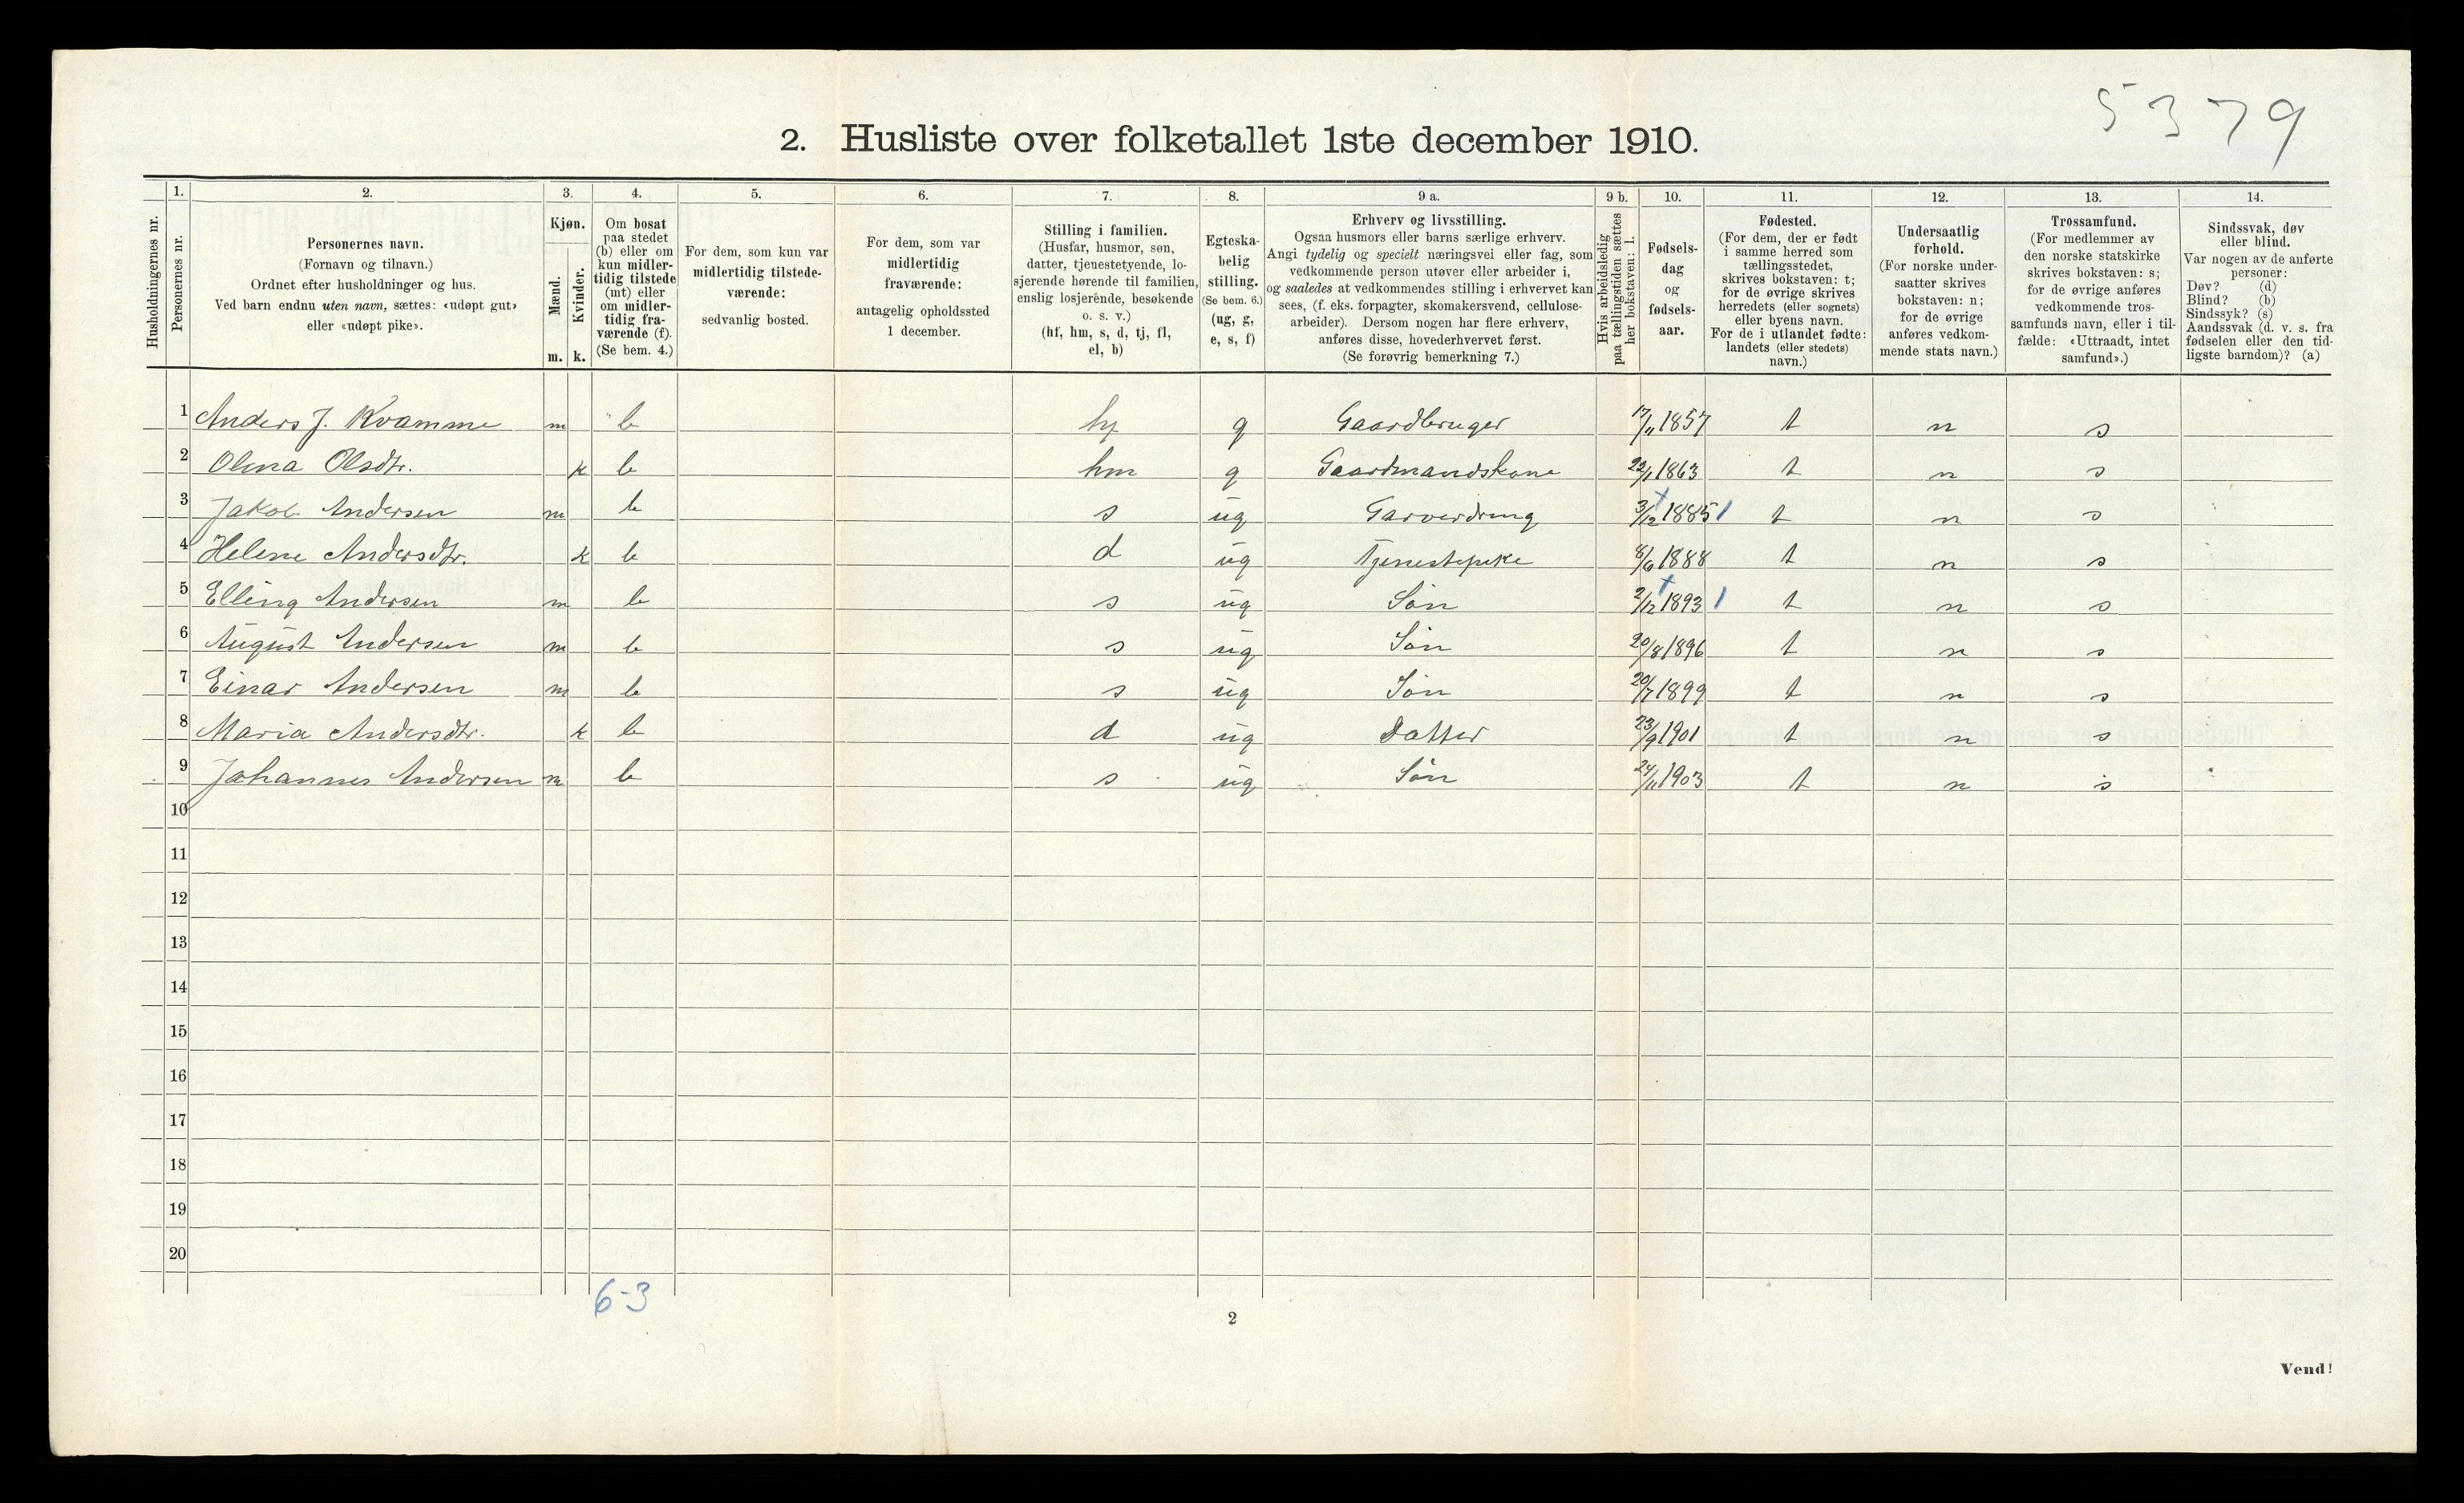 5379
2. Husliste over folketallet 1ste december 1910.
Husholdningernes nr.
1.
Personernes nr.
2.
Personernes navn.
(Fornavn og tilnavn.)
Ordnet efter husholdninger og hus.
Ved barn endnu uten navn, sættes: «udøpt gut»
eller «udøpt pike».
3.
Kjøn.
Mænd.
m.
Kvinder.
k.
4.
Om bosat
paa stedet
(b) eller om
kun midler-
tidig tilstede
(mt) eller
om midler-
tidig fra-
værende (f).
(Se bem. 4.)
5.
For dem, som kun var
midlertidig tilstede-
værende:
sedvanlig bosted.
6.
For dem, som var
midlertidig
fraværende:
antagelig opholdssted
1 december.
7.
Stilling i familien.
(Husfar, husmor, søn,
datter, tjenestetyende, lo-
sjerende hørende til familien,
enslig losjerende, besøkende
o. s. v.)
(hf, hm, s, d, tj, fl,
el, b)
8.
Egteska-
belig
stilling.
(Se bem. 6.)
(ug, g,
e, s, f)
9 a.
Erhverv og livsstilling.
Ogsaa husmors eller barns særlige erhverv.
Angi tydelig og specielt næringsvei eller fag, som
vedkommende person utøver eller arbeider i,
og saaledes at vedkommendes stilling i erhvervet kan
sees, (f. eks. forpagter, skomakersvend, cellulose-
arbeider). Dersom nogen har flere erhverv,
anføres disse, hovederhvervet først.
(Se forøvrig bemerkning 7.)
9 b.
Hvis arbeidsledig
paa tællingstiden sættes
her bokstaven: l.
10.
Fødsels-
dag
og
fødsels-
aar.
11.
Fødested.
(For dem, der er født
i samme herred som
tællingsstedet,
skrives bokstaven: t;
for de øvrige skrives
herredets (eller sognets)
eller byens navn.
For de i utlandet fødte:
landets (eller stedets)
navn.)
12.
Undersaatlig
forhold.
(For norske under-
saatter skrives
bokstaven: n;
for de øvrige
anføres vedkom-
mende stats navn.)
13.
Trossamfund.
(For medlemmer av
den norske statskirke
skrives bokstaven: s;
for de øvrige anføres
vedkommende tros-
samfunds navn, eller i til-
fælde: «Uttraadt, intet
samfund».)
14.
Sindssvak, døv
eller blind.
Var nogen av de anførte
personer:
Døv? (d)
Blind? (b)
Sindssyk? (s)
Aandssvak (d. v. s. fra
fødselen eller den tid-
ligste barndom)? (a)
1 Anders J. Kvamme m b hf g Gaardbruger 17/11 1857 t n s
2 Olina Olsdtr. k b hm g Gaardmandskone 22/1 1863 t n s
3 Jakob Andersen m b s ug Garverdreng 3/12 1885 t n s
4 Helene Andersdtr. k b d ug Tjenestepike 8/6 1888 t n s
5 Elling Andersen m b s ug Søn 2/12 1893 t n s
6 August Andersen m b s ug Søn 20/8 1896 t n s
7 Einar Andersen m b s ug Søn 20/7 1899 t n s
8 Maria Andersdtr. k b d ug Datter 23/9 1901 t n s
9 Johannes Andersen m b s ug Søn 24/11 1903 t n s
10
11
12
13
14
15
16
17
18
19
20
6-3
2
Vend!